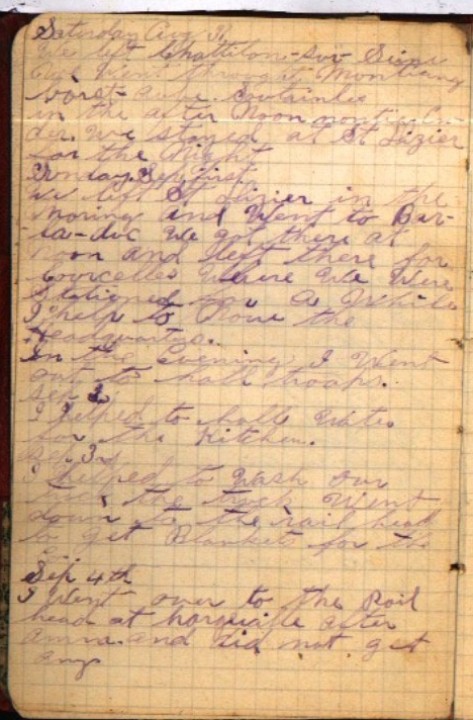 Saturday Aug 31
We left Chattelon-sur Siene
and Went through
in the after Noon
der. We stayed at St Dizier
for the Night
Sunday Sep first
We left St Dizier in the
moring and Went to Bar-
la-duc We got there at
noon and left there for
Courcelles Where We Were
stationed for a While
I help to Move the
Headquarters.
In the Evening I Went
out to hall troops.
Sep 2
I helped to halle Water
for the Kitchen.
Sep 3rd
I helped to Wash our
truck the truck Went
down to the rail head
to get Blankets for the
Sep 4th
I Went over to the Rail
head at after
amna. and did not get
any